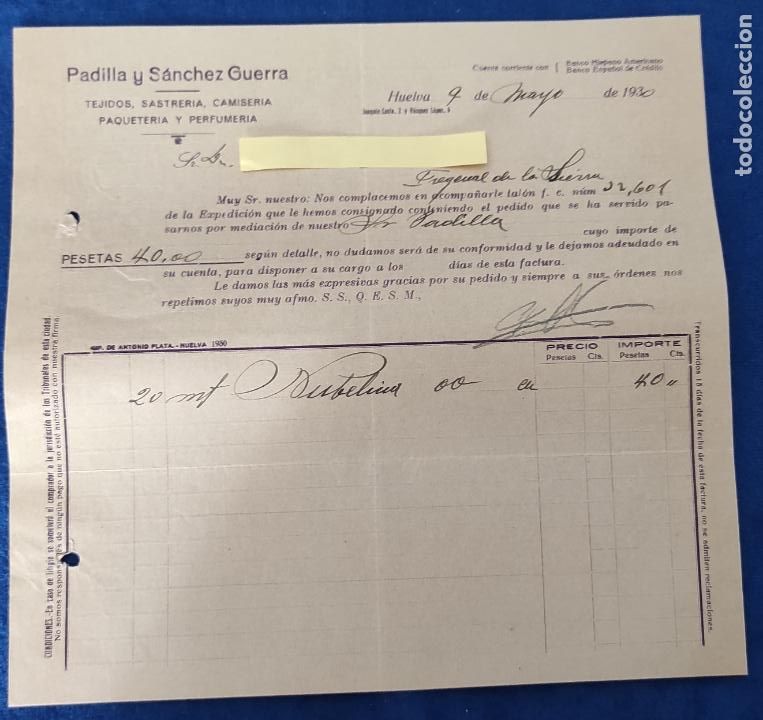 Padilla y Sánchez Guerra
TEJIDOS, SASTRERIA, CAMISERIA
PAQUETERIA Y PERFUMERIA
Cuenta corriente con { Banco Hispano Americano
Banco Español de Crédito
Huelva 9 de Mayo de 1930
Joaquín Costa, 2 y Vázquez López, 5
Sr. Dn.
Fregenal de la Sierra
Muy Sr. nuestro: Nos complacemos en acompañarle talón f. c. núm 22,601
de la Expedición que le hemos consignado conteniendo el pedido que se ha servido pa-
sarnos por mediación de nuestro Sr Padilla cuyo importe de
PESETAS 40,00 según detalle, no dudamos será de su conformidad y le dejamos adeudado en
su cuenta, para disponer a su cargo a los días de esta factura.
Le damos las más expresivas gracias por su pedido y siempre a sus órdenes nos
repetimos suyos muy afmo. S. S., Q. E. S. M.,
IMP. DE ANTONIO PLATA.-HUELVA 1930
PRECIO IMPORTE
Pesetas Cts. Pesetas Cts.
20 mt Nubelina 00 en 40 "
CONDICIONES.-En caso de litigio se someterá el comprador a la jurisdicción de los Tribunales de esta ciudad.
No somos responsables de ningún pago que no esté autorizado con nuestra firma.
Transcurridos 15 días de la fecha de esta factura, no se admiten reclamaciones.
todocoleccion